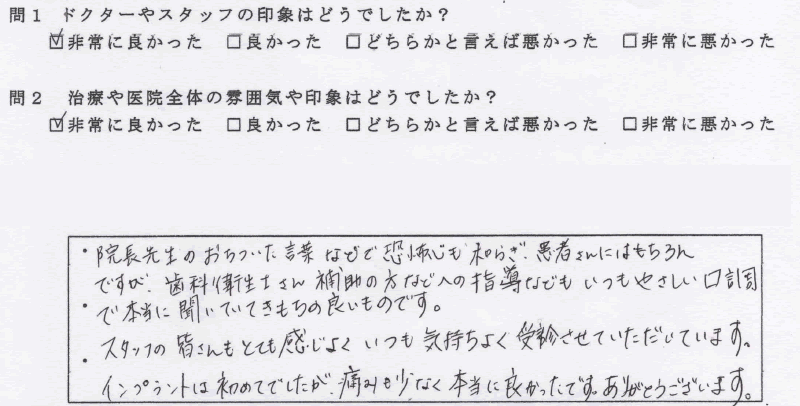 問1 ドクターやスタッフの印象はどうでしたか？
☑非常に良かった □良かった □どちらかと言えば悪かった □非常に悪かった
問2 治療や医院全体の雰囲気や印象はどうでしたか？
☑非常に良かった □良かった □どちらかと言えば悪かった □非常に悪かった
・院長先生のおちついた言葉などで恐怖心も和らぎ、患者さんにはもちろん
ですが、歯科衛生士さん補助の方などへの指導などもいつもやさしい口調
・で本当に聞いていてきもちの良いものです。
スタッフの皆さんもとても感じよくいつも気持ちよく受診させていただいています。
・インプラントは初めてでしたが、痛みも少なく本当に良かったです。ありがとうございます。